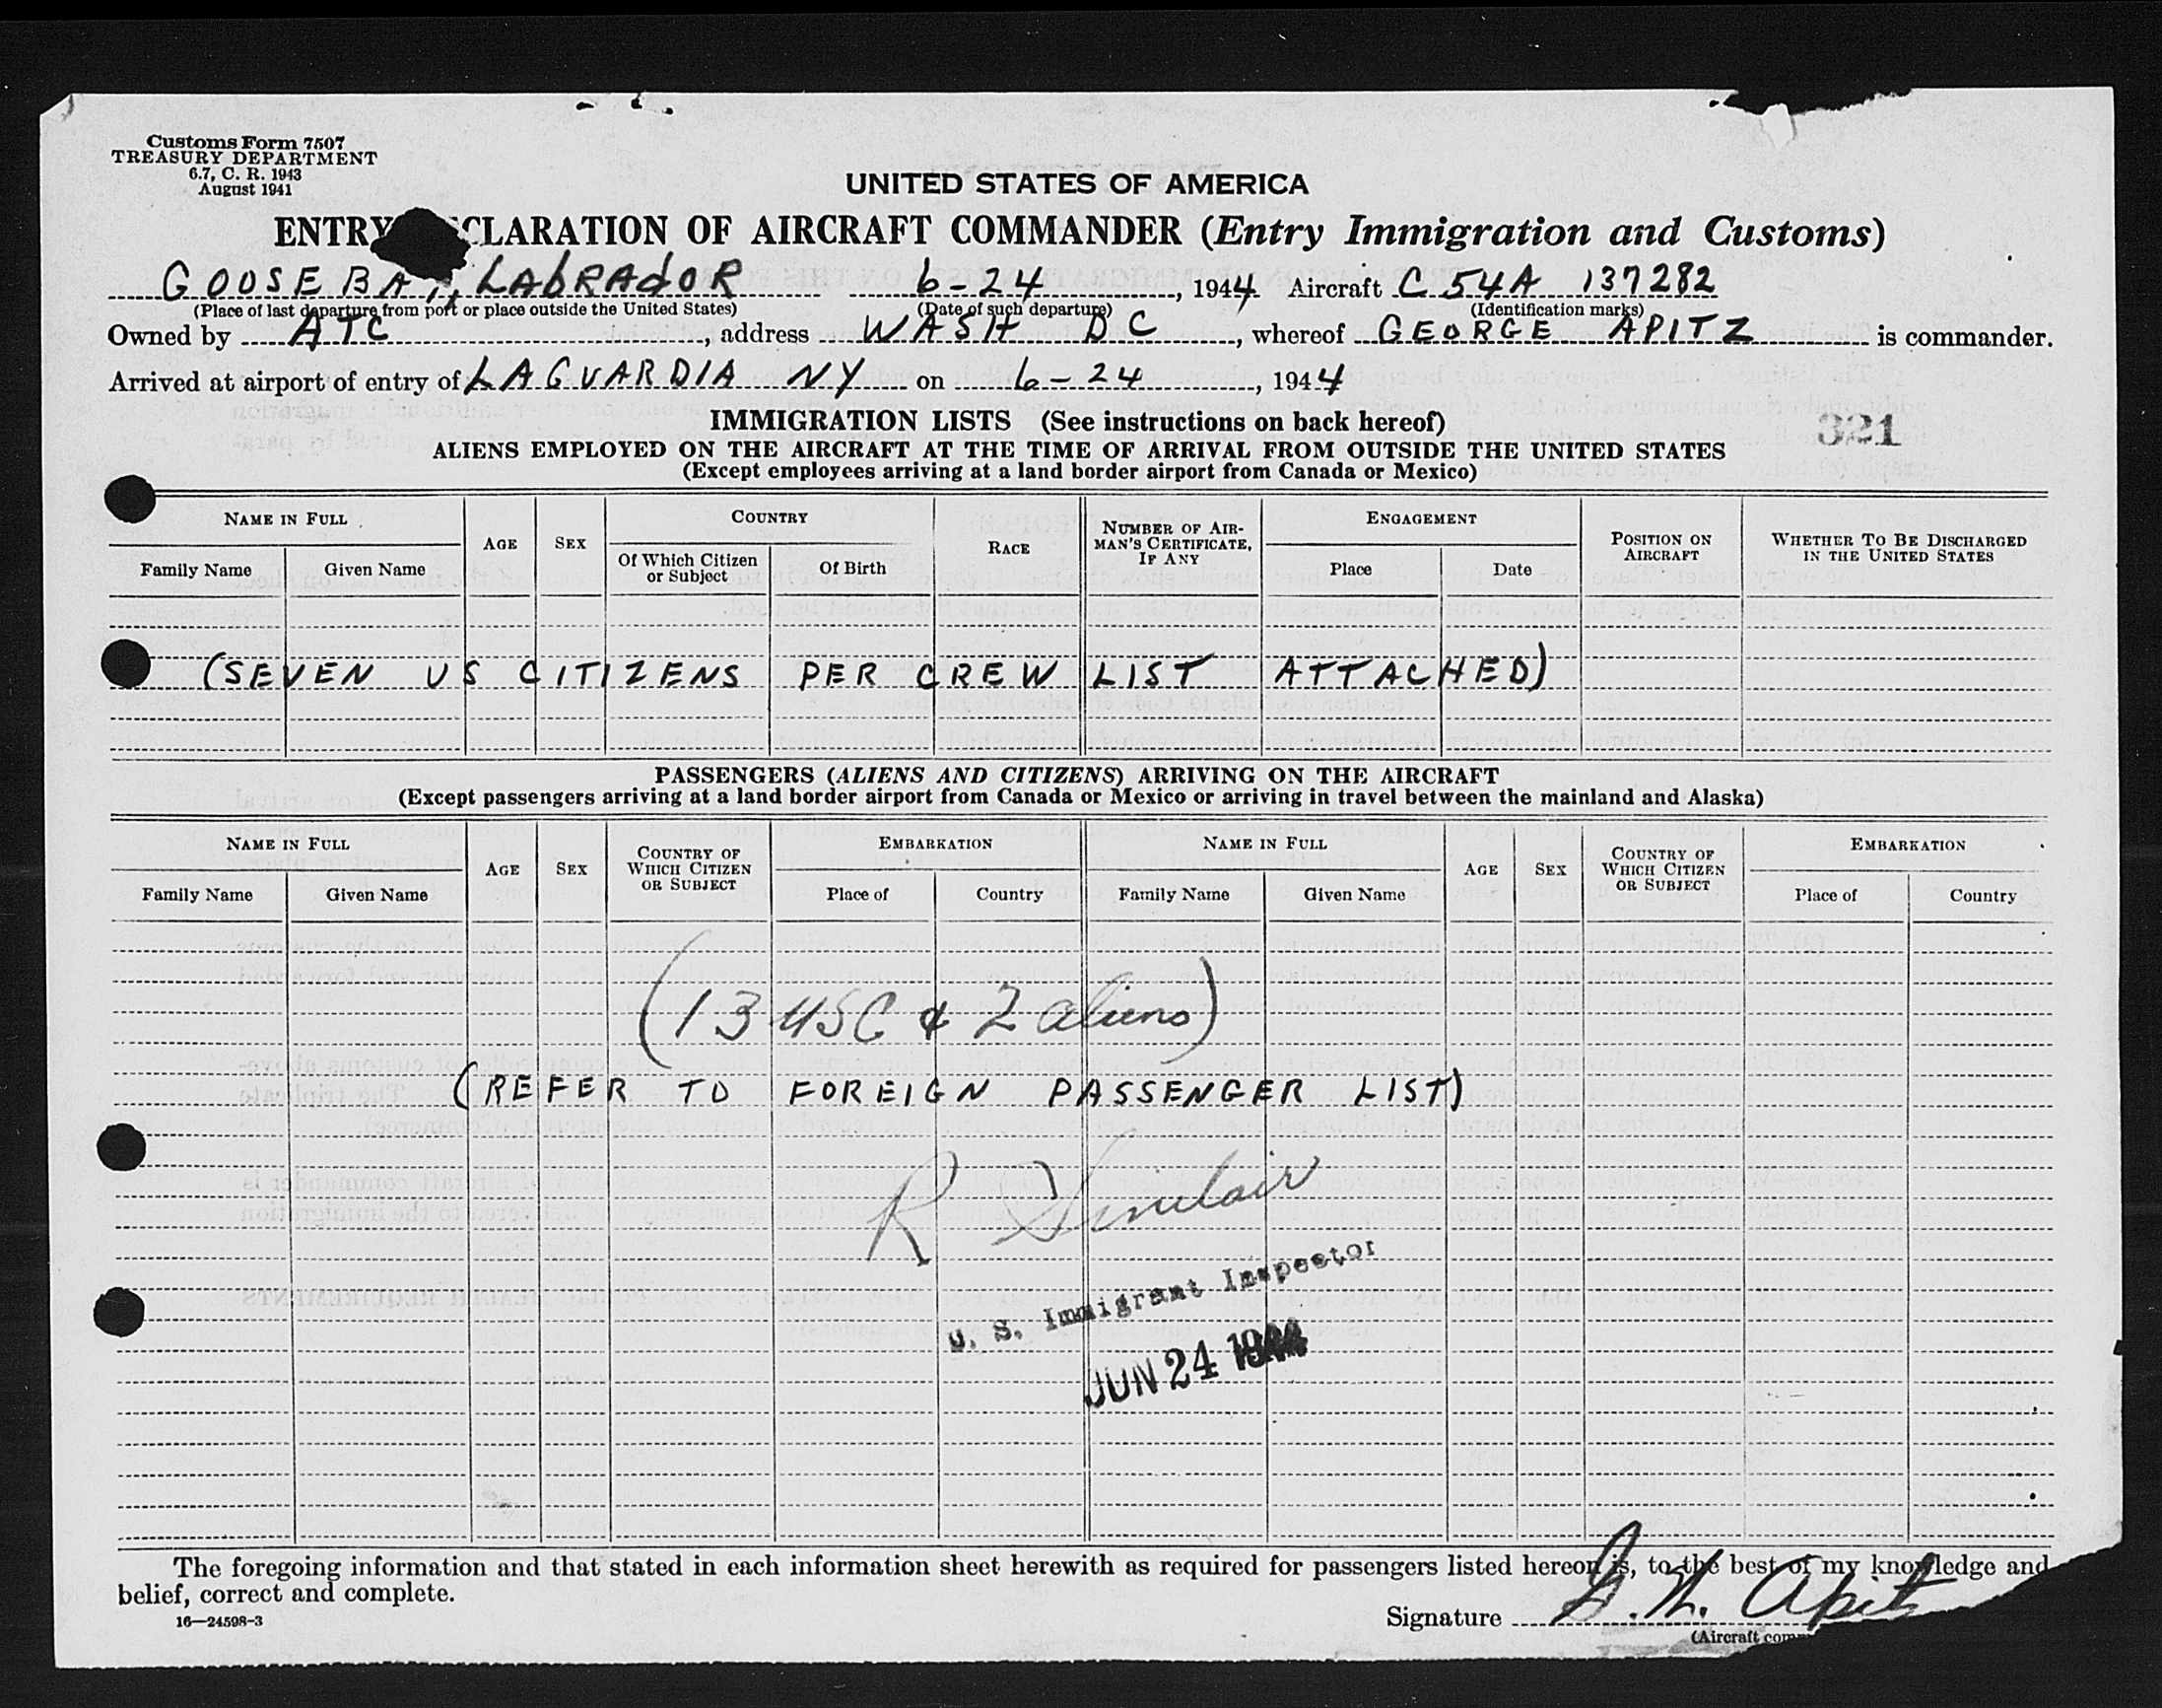 Customs Form 7507
TREASURY DEPARTMENT
6.7, C. R. 1943
August 1941
UNITED STATES OF AMERICA
ENTRY CLARATION OF AIRCRAFT COMMANDER (Entry Immigration and Customs)
GOOSE BAY, LABRADOR 6-24, 1944 Aircraft C 54A 137282
(Place of last departure from port or place outside the United States) (Date of such departure) (Identification marks)
Owned by ATC, address WASH DC, whereof GEORGE APITZ is commander.
Arrived at airport of entry of LAGUARDIA NY on 6-24, 1944
IMMIGRATION LISTS (See instructions on back hereof)
321
ALIENS EMPLOYED ON THE AIRCRAFT AT THE TIME OF ARRIVAL FROM OUTSIDE THE UNITED STATES
(Except employees arriving at a land border airport from Canada or Mexico)
NAME IN FULL AGE SEX COUNTRY RACE NUMBER OF AIRMAN'S CERTIFICATE, IF ANY ENGAGEMENT POSITION ON AIRCRAFT WHETHER TO BE DISCHARGED IN THE UNITED STATES
Family Name Given Name Of Which Citizen or Subject Of Birth Place Date
(SEVEN US CITIZENS PER CREW LIST ATTACHED)
PASSENGERS (ALIENS AND CITIZENS) ARRIVING ON THE AIRCRAFT
(Except passengers arriving at a land border airport from Canada or Mexico or arriving in travel between the mainland and Alaska)
NAME IN FULL AGE SEX COUNTRY OF WHICH CITIZEN OR SUBJECT EMBARKATION NAME IN FULL AGE SEX COUNTRY OF WHICH CITIZEN OR SUBJECT EMBARKATION
Family Name Given Name Place of Country Family Name Given Name Place of Country
(13 USC & 2 aliens)
(REFER TO FOREIGN PASSENGER LIST)
R Sinclair
U. S. Immigrant Inspector
JUN 24 1944
The foregoing information and that stated in each information sheet herewith as required for passengers listed hereon is, to the best of my knowledge and
belief, correct and complete.
16—24598-3
Signature G. H. Apitz
(Aircraft com